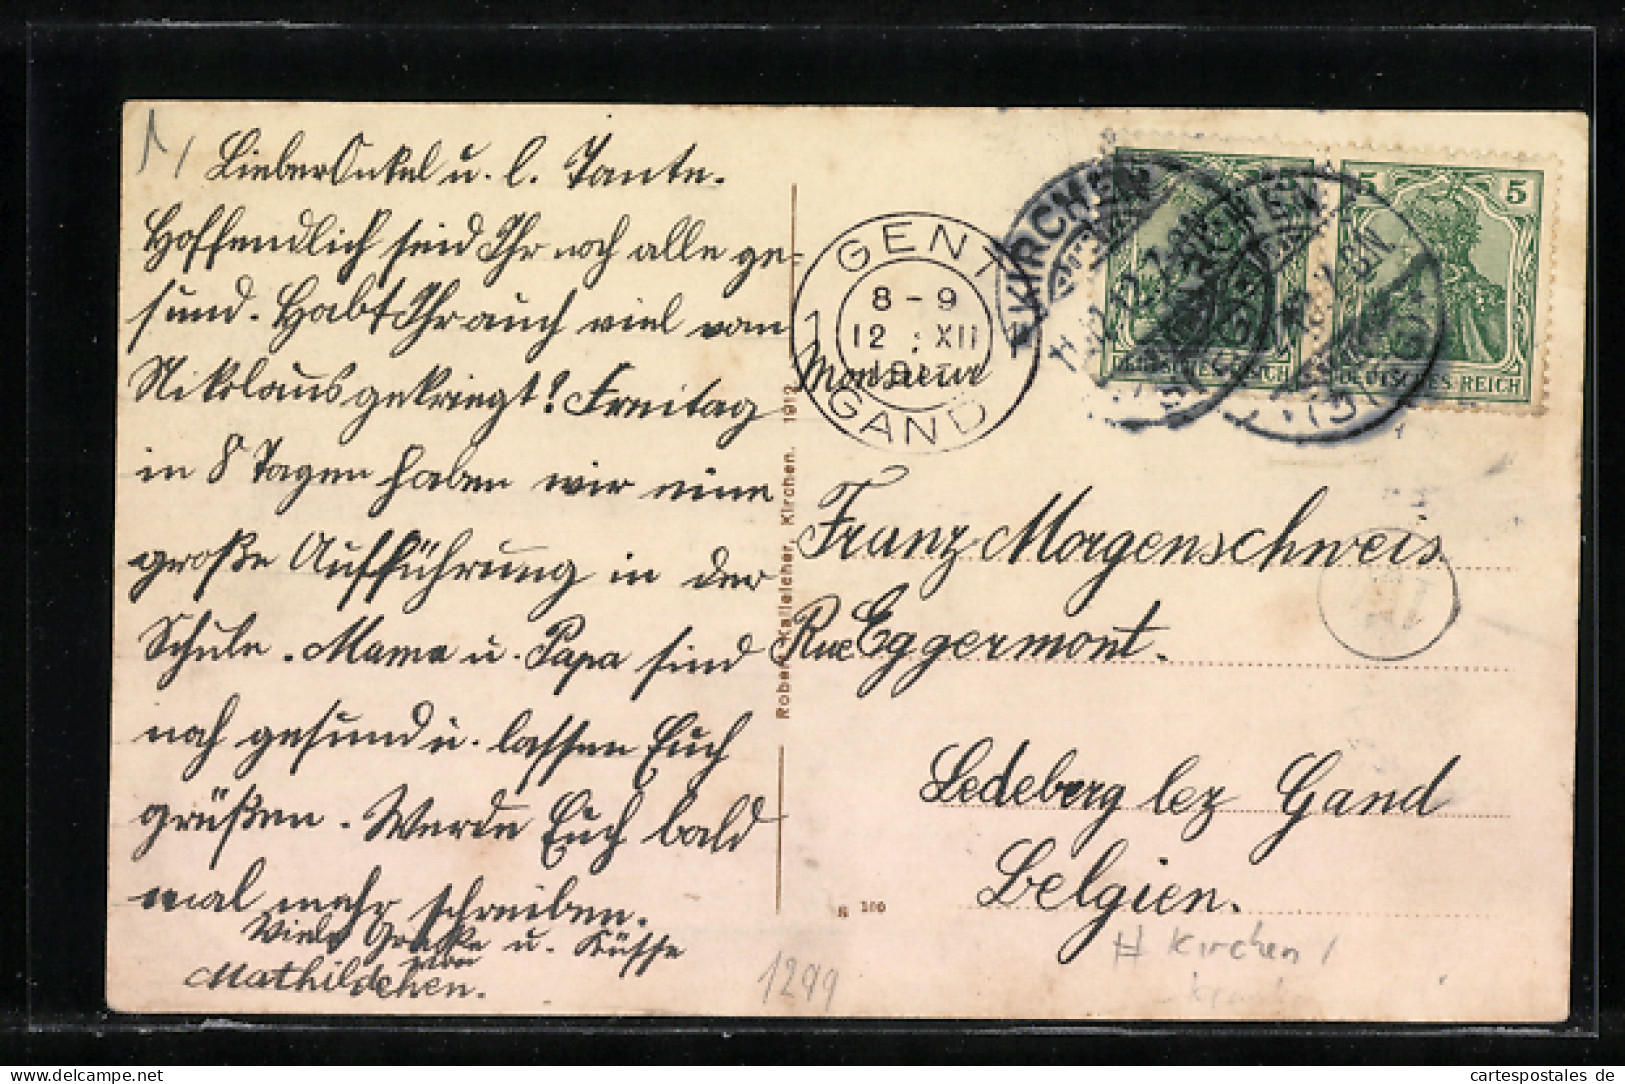 Lieber Onkel u. l. Tante.
Hoffendlich seid Ihr noch alle ge-
sund. Habt Ihr auch viel vom
Nikolaus gekriegt! Freitag
in 8 Tagen haben wir eine
große Aufführung in der
Schule. Mama u. Papa sind
noch gesund u. lassen Euch
grüßen. Werde Euch bald
mal mehr schreiben.
Viele Grüße u. Küsse
von
Mathildchen.
1299
Robert Kalleicher, Kirchen. 1912
GENT
8-9
12 XII
GAND
KIRCHEN
5 5
DEUTSCHES REICH
DEUTSCHES REICH
Monsieur
Franz Morgenschweis.
Rue Eggermont.
Ledeberg lez Gand
Belgien.
100
# Kirchen /
cartespostales de